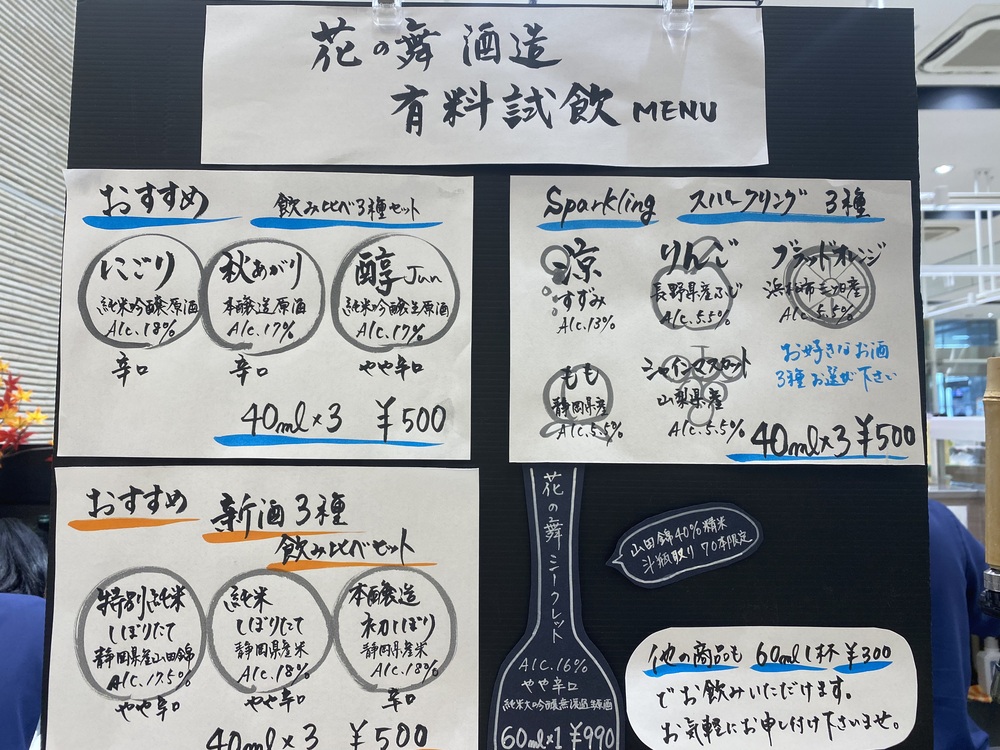 花の舞 酒造
有料試飲 MENU
おすすめ 飲み比べ3種セット
にごり
純米吟醸原酒
Alc.18%
辛口
秋あがり
本醸造原酒
Alc.17%
辛口
醇 Jun
純米吟醸生原酒
Alc.17%
やや辛口
40ml×3 ¥500
Sparkling スパークリング 3種
涼
すずみ
Alc.13%
りんご
長野県産ふじ
Alc.5.5%
ブラッドオレンジ
浜松市三ヶ日産
Alc.5.5%
もも
静岡県産
Alc.5.5%
シャインマスカット
山梨県産
Alc.5.5%
お好きなお酒
3種お選び下さい
40ml×3 ¥500
おすすめ 新酒3種
飲み比べセット
特別純米
しぼりたて
静岡県産山田錦
Alc.17.5%
やや辛口
純米
しぼりたて
静岡県産米
Alc.18%
やや辛口
本醸造
初しぼり
静岡県産米
Alc.18%
辛口
40ml×3 ¥500
花の舞シークレット
Alc.16%
やや辛口
純米大吟醸無濾過生原酒
60ml×1 ¥990
山田錦40%精米
斗瓶取り 70本限定
他の商品も 60ml1杯¥300
でお飲みいただけます。
お気軽にお申し付け下さいませ。